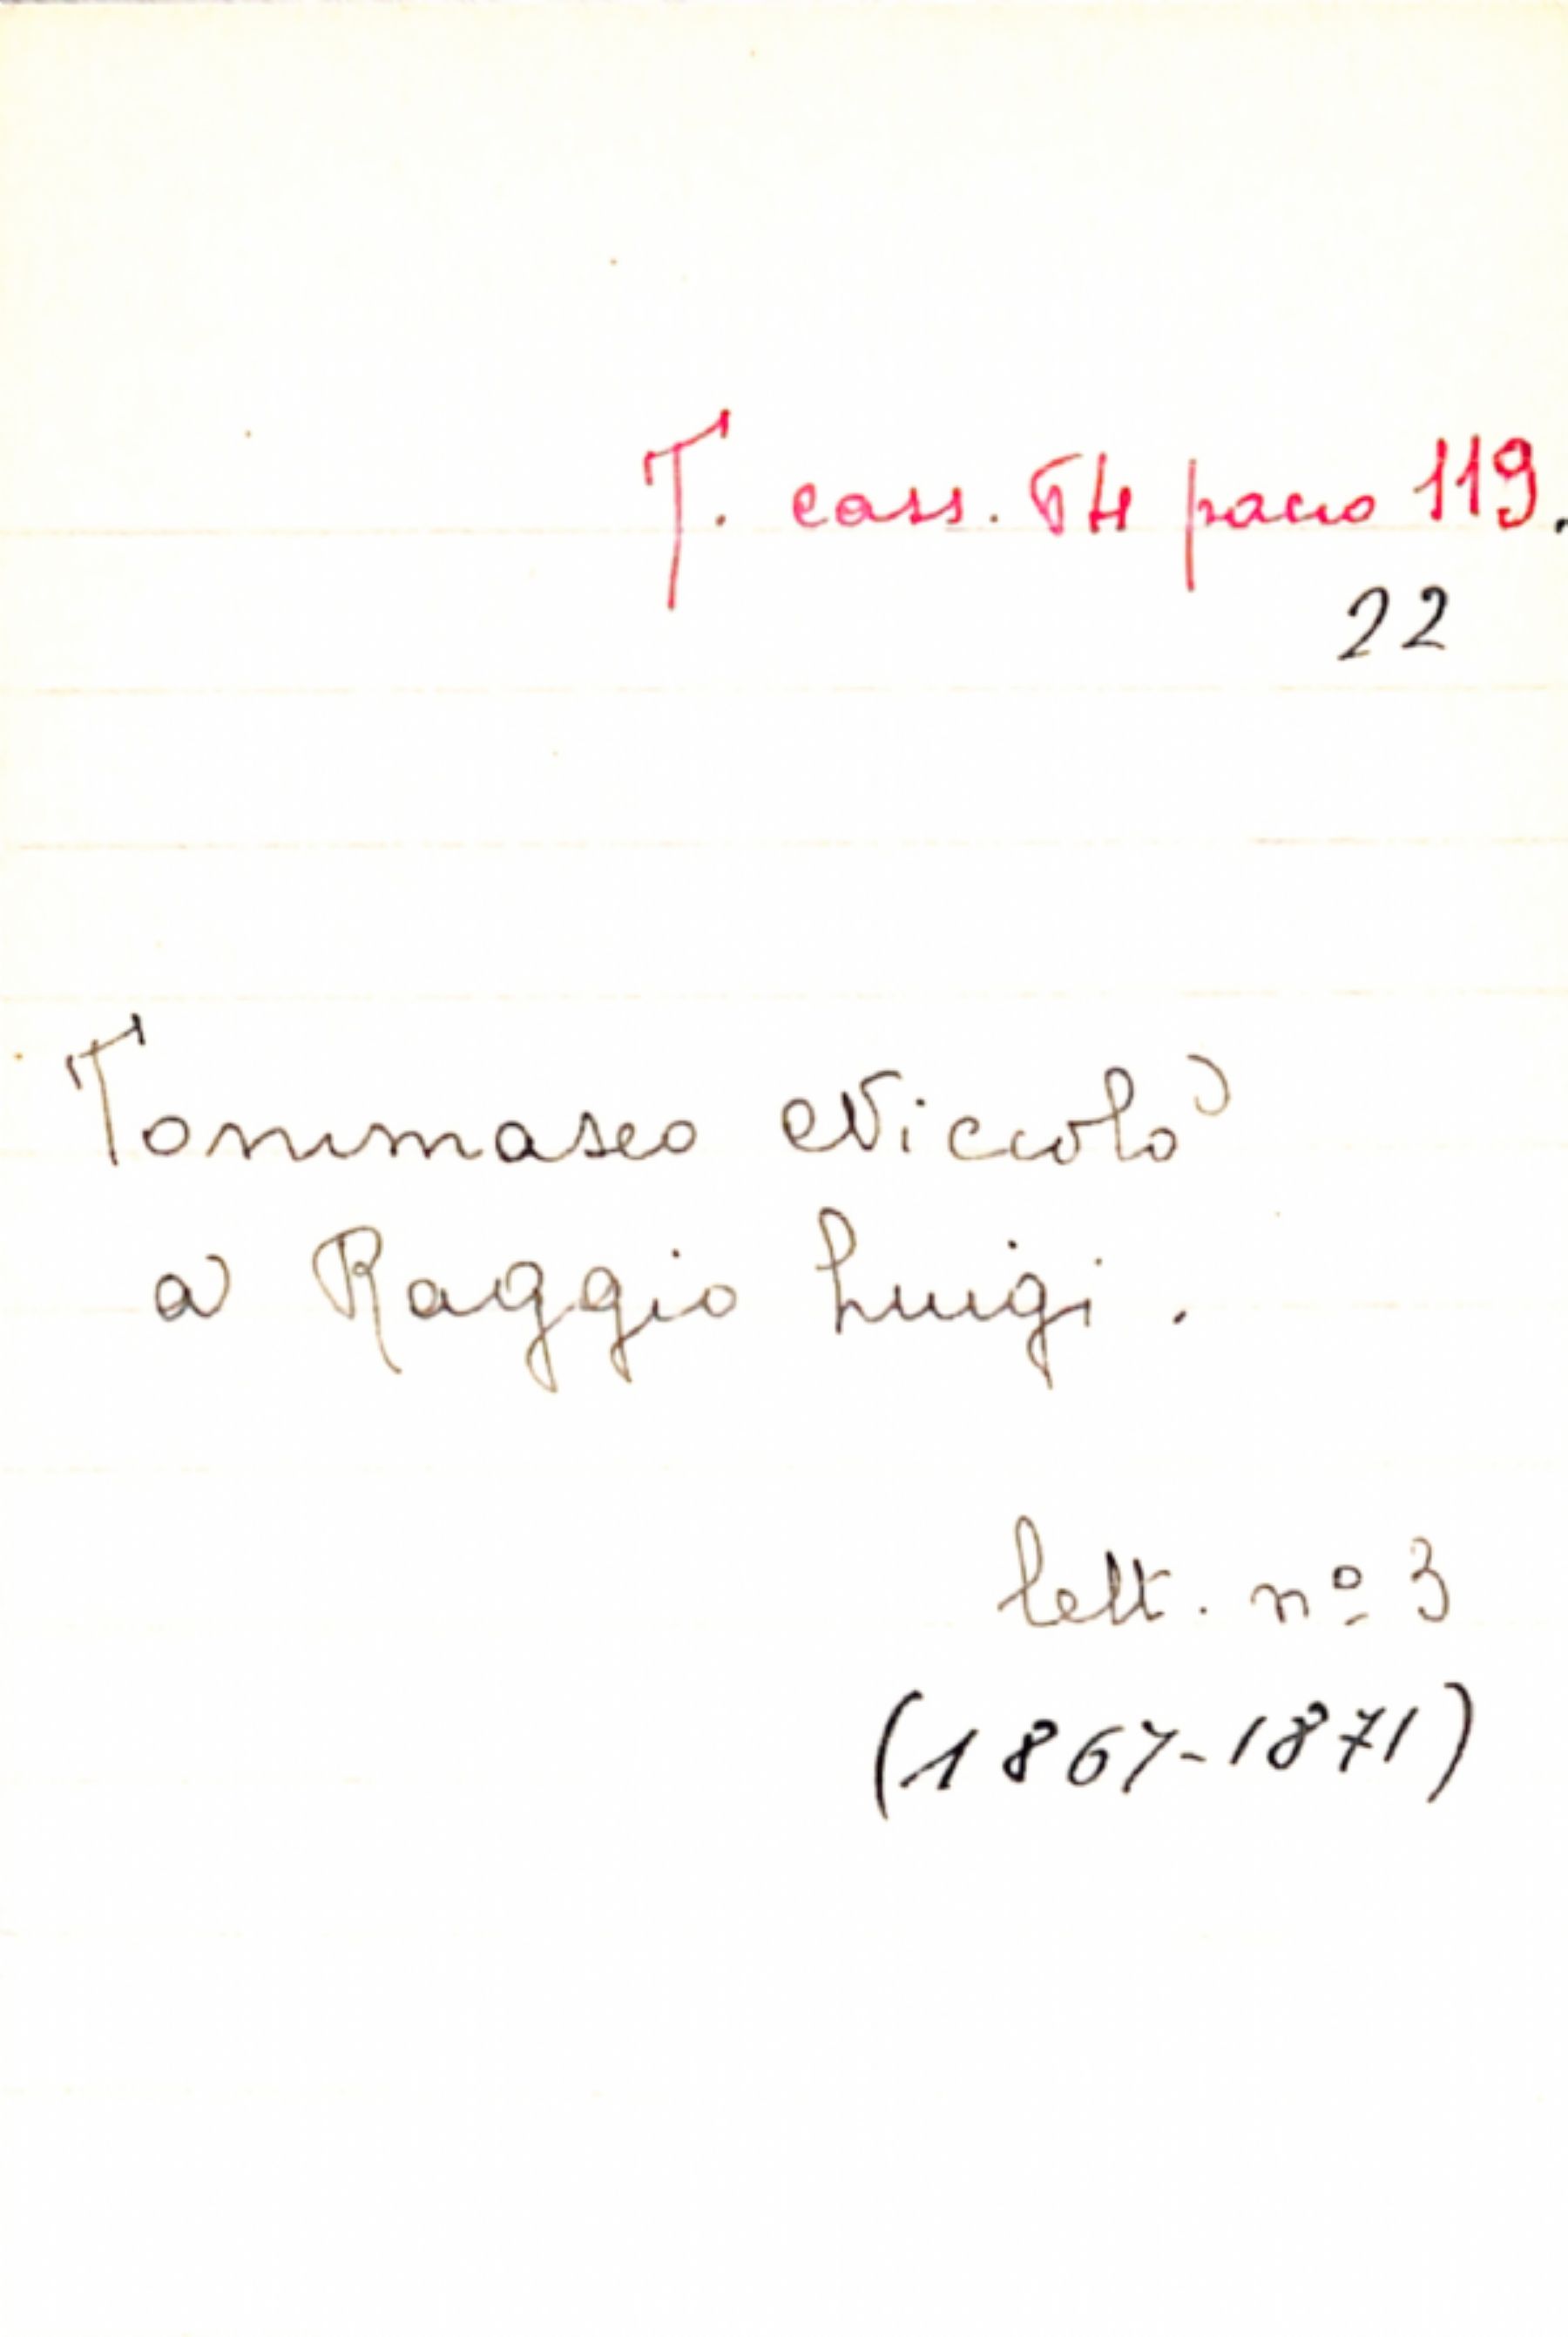 T. cass. 54 pacco 119.
22
Tommaseo Niccolò
a Raggio Luigi.
lett. nº 3
(1867-1871)